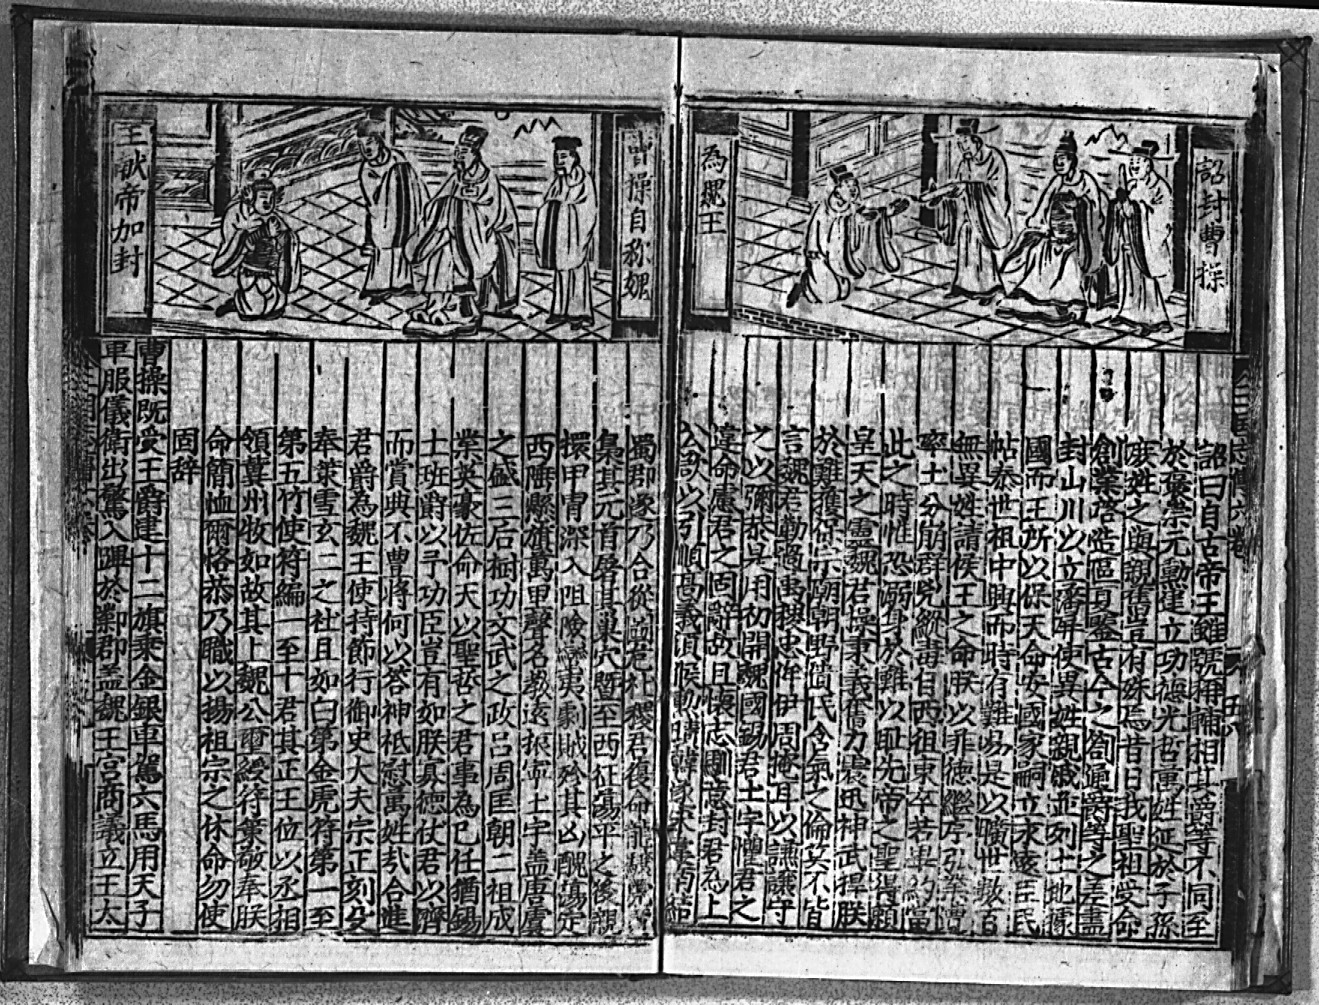 詔封曹操
為魏王
三國志傳六卷
詔曰自古帝王雖號稱輔相其爵等不同至
於褒崇元勳建立功德光啓萬姓延於子孫
庶姓之與親豈有殊焉昔日我聖祖受命
創業啓造區夏鑒古今之制通爵等之差盡
封山川以立藩屏使異姓親戚並列土地據
國而王所以保天命安國家嗣立永遠臣民
帖泰世祖中興而時有難易是以曠世數百
無異姓諸侯王之命朕以菲德繼序弘業遭
率土分崩群兇縱毒自西徂東卒若
此之時惟恐溺於難以耻先帝之聖得賴
皇天之靈魏君操秉義奮力震迅神武捍朕
於難獲保宗廟朝野遺氏含氣之倫莫不皆
言魏君勤過禹稷忠侔伊周掩耳以謙讓守
之以彌恭具用初開魏國錫君土宇懼君之
違命慮君之固辭故且懷志屈意封君為上
公欲以引順高義須俟勳
曹操自称魏
王献帝加封
蜀郡遂乃合從 社稷君復命龍驤
梟其元首屠其巢穴暨至西征蕩平之後親
擐甲冑深入阻險 夷劇賊殄其凶醜蕩定
西陲縣旗萬里聲名教遠振寧土宇盖唐虞
之盛三后樹功文武之政吕周匡朝二祖成
業英豪佐命夫以聖哲之君事為己任猶錫
士班爵以予功臣豈有如朕寡德仗君以濟
而賞典不豐將何以答神祇慰萬姓
君爵為魏王使持節行御史大夫宗正刘
奉策雪玄二之社且如白第金虎符第一至
第五竹使符編一至十君其正王位以丞相
領冀州牧如故其上魏公璽綬符策敬奉朕
命簡恤爾恪恭乃職以揚祖宗之休命勿使
固辞
曹操既受王爵建十二旗乘金銀車駕六馬用天子
車服儀衛出警入蹕於鄴郡盖魏王宫商議立王太